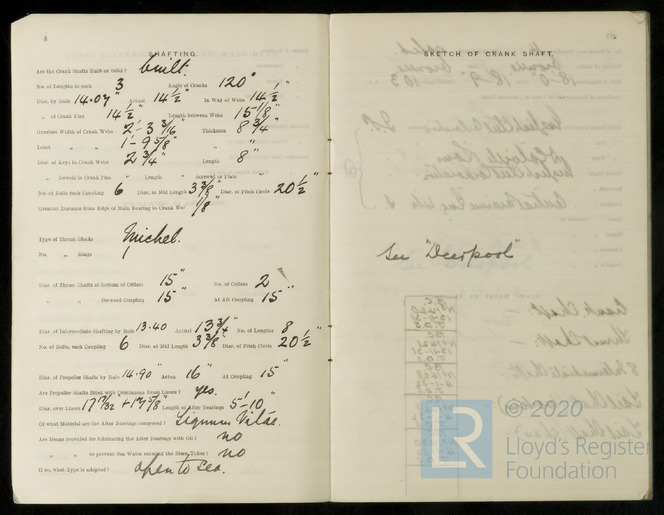 8
SHAFTING.
Are the Crank Shafts Built or Solid? built.
No. of Lengths in each 3 Angle of Cranks 120°
Diar. by Rule 14.07" Actual 14 1/2" In Way of Webs 14 1/2"
" of Crank Pins 14 1/2" Length between Webs 15 1/8"
Greatest Width of Crank Webs 2'-3 3/16" Thickness 8 3/4"
Least " " 1'-9 5/8" "
Diar. of Keys in Crank Webs 2 3/4" Length 8"
" Dowels in Crank Pins " Length " Screwed or Plain
No. of Bolts each Coupling 6 Diar. at Mid Length 3 3/8" Diar. of Pitch Circle 20 1/2"
Greatest Distance from Edge of Main Bearing to Crank Web 1/8"
Type of Thrust Blocks Michel.
No. " Rings 1
Diar. of Thrust Shafts at bottom of Collars 15" No. of Collars 2
" " Forward Coupling 15" At Aft Coupling 15"
Diar. of Intermediate Shafting by Rule 13.40 Actual 13 3/4" No. of Lengths 8
No. of Bolts, each Coupling 6 Diar. at Mid Length 3 3/8" Diar. of Pitch Circle 20 1/2"
Diar. of Propeller Shafts by Rule 14.90 Actual 16" At Coupling 15"
Are Propeller Shafts fitted with Continuous Brass Liners? yes.
Diar. over Liners 17 7/32 + 17 5/8" Length of After Bearings 5'-10"
Of what Material are the After Bearings composed? Lignum Vitae.
Are Means provided for lubricating the After Bearings with Oil? no
" " to prevent Sea Water entering the Stern Tubes? no
If so, what Type is adopted? open to sea.
SKETCH OF CRANK SHAFT.
See "Deerpool"
LR
© 2020
Lloyd's Register
Foundation